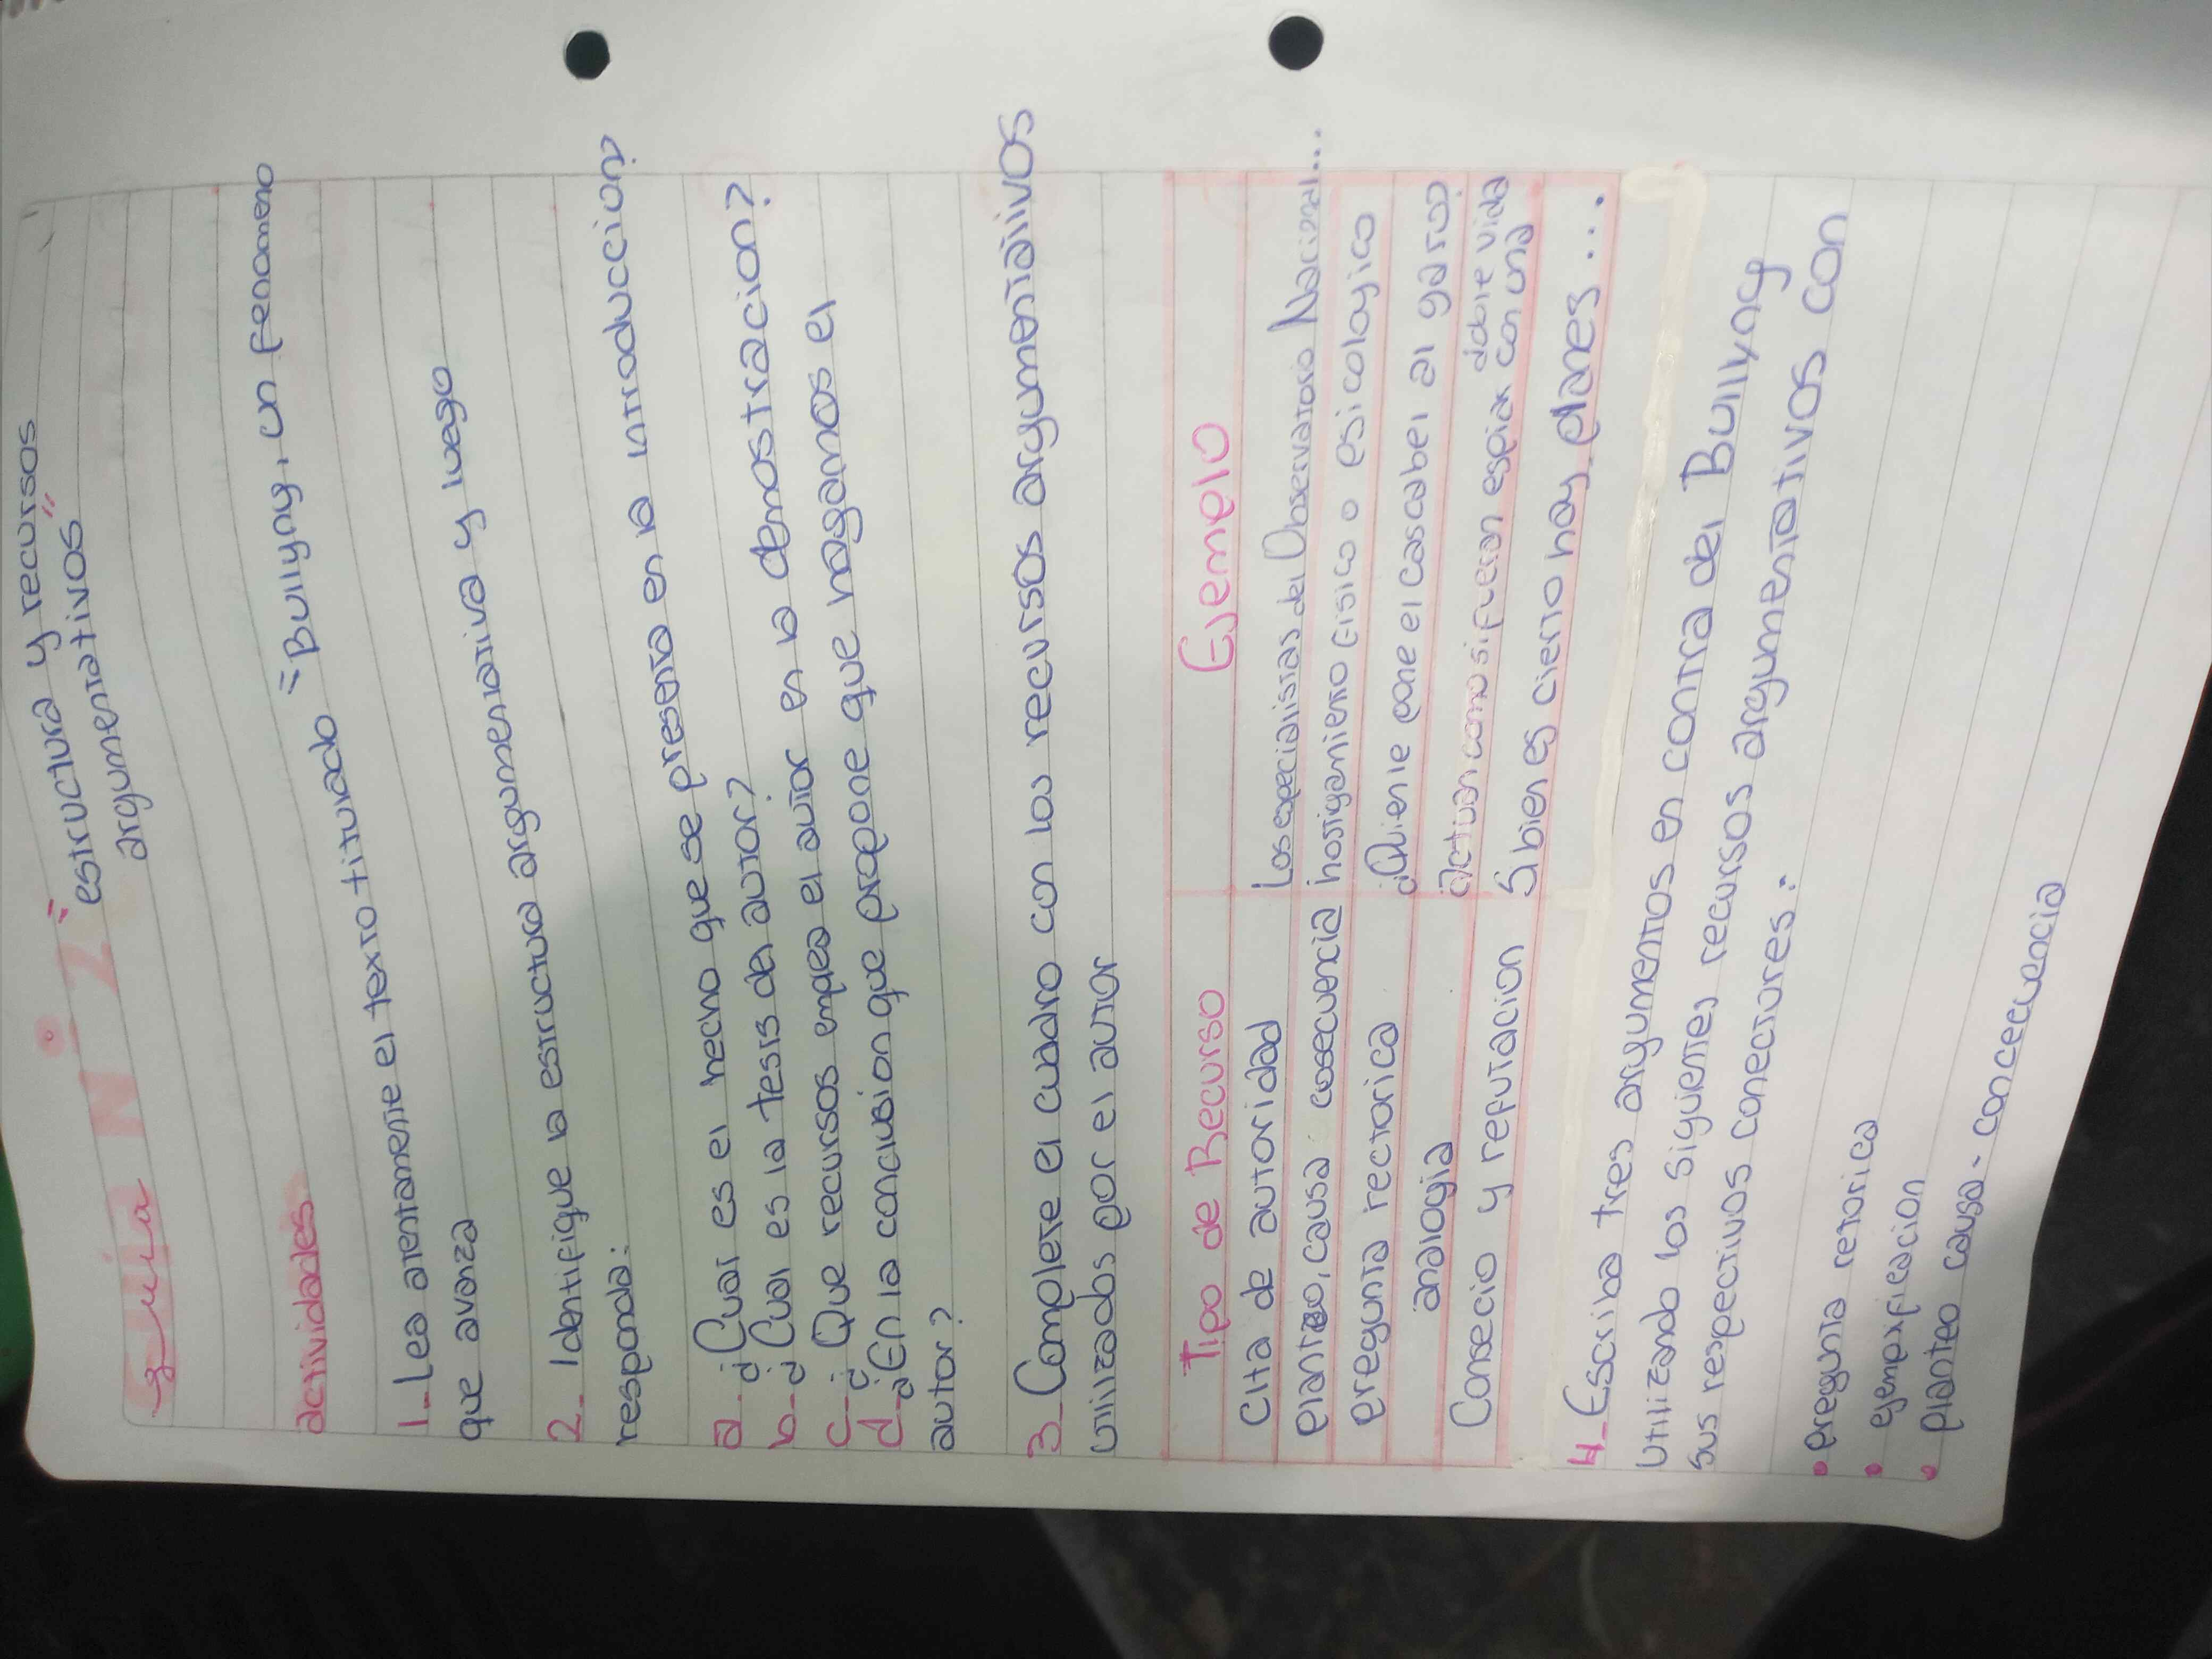 guia N° 2 "estructura y recursos
argumentativos"
actividades
1_ Lea atentamente el texto titulado "Bullyng, un fenomeno
que avanza
2_ Identifique la estructura argumentativa y luego
responda:
a_ ¿Cual es el hecho que se presenta en la introduccion?
b_ ¿Cual es la tesis del autor?
c_ ¿Que recursos emplea el autor en la demostracion?
d_ ¿En la conclusion que propone que hagamos el
autor?
3_ Complete el cuadro con los recursos argumentativos
utilizados por el autor
Tipo de Recurso Ejemplo
Cita de autoridad Los especialistas del Observatorio Nacional...
planteo, causa cosecuencia hostigamiento fisico o psicologico
pregunta rectorica ¿Quien le pone el cascabel al gato?
analogia actuan como si fueran espias con una doble vida
Consecio y refutacion Si bien es cierto hay planes...
4_ Escriba tres argumentos en contra del Bullyng
utilizando los siguientes recursos argumentativos con
sus respectivos conectores:
• pregunta retorica
• ejemplificacion
• planteo causa - concecuencia